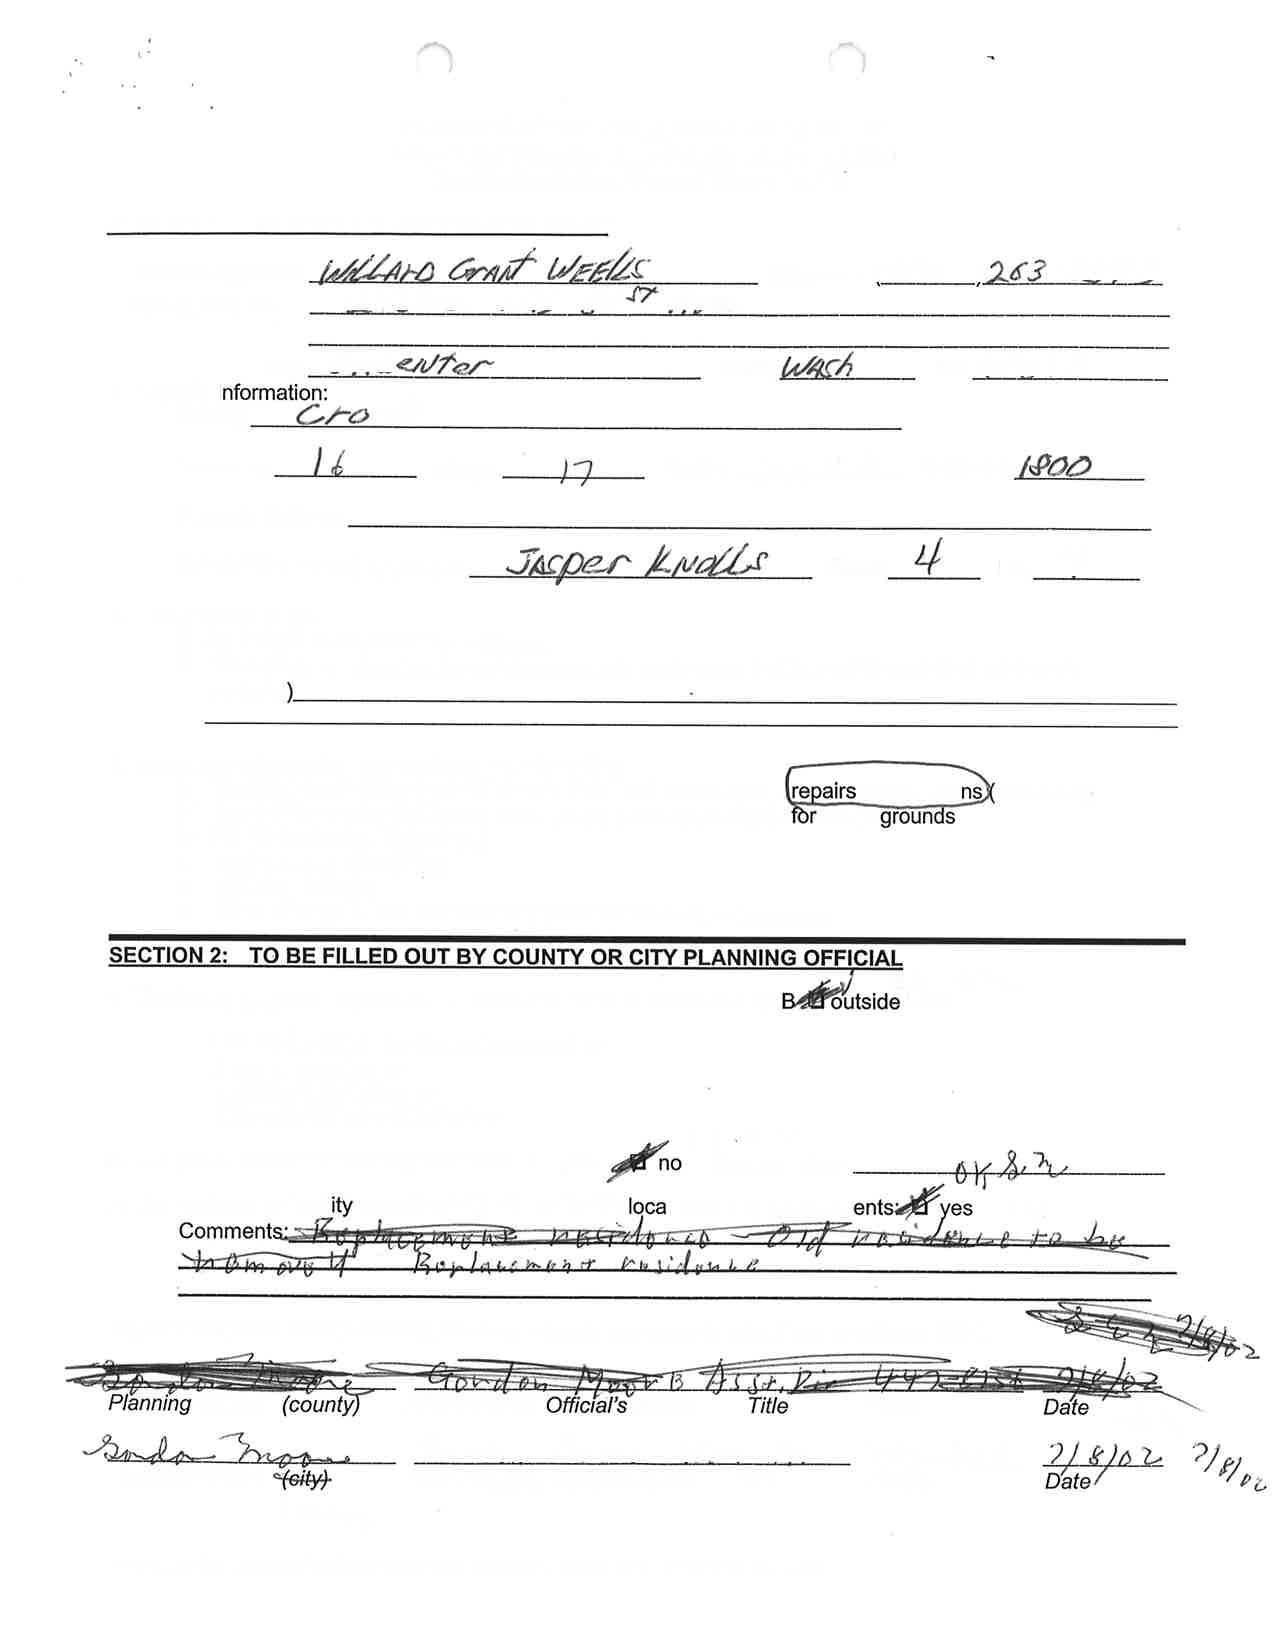 WILLARD GRANT WEEKS 263
ST
enter Wash
nformation:
Cro
16 17 1800
Jasper Knolls 4
)
repairs ns (
for grounds
SECTION 2: TO BE FILLED OUT BY COUNTY OR CITY PLANNING OFFICIAL
B outside
no OK
ity loca ents: yes
Comments: Replacement residence - Old residence to be
Replacement residence
7/8/02
Gordon Moore Gordon Moore Asst. Dir 7/8/02
Planning (county) Official's Title Date
Gordon Moore 7/8/02 7/8/02
(city) Date